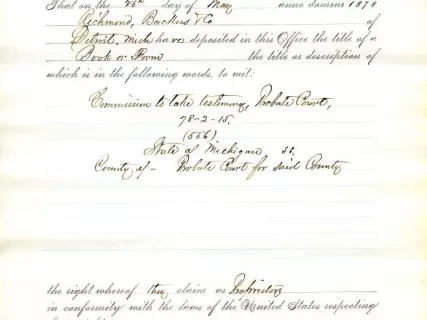 That on the 26th day of May anno domini 1878
Richmond, Backus & Co of
Detroit, Mich have deposited in this Office the title of a
Book or Form the title as description of
which is in the following words, to wit:
Commission to take testimony, Probate Court,
78-2-15.
(556)
State of Michigan ss.
County of - Probate Court for said County
the right whereof they claim as Proprietors
in conformity with the laws of the United States respecting